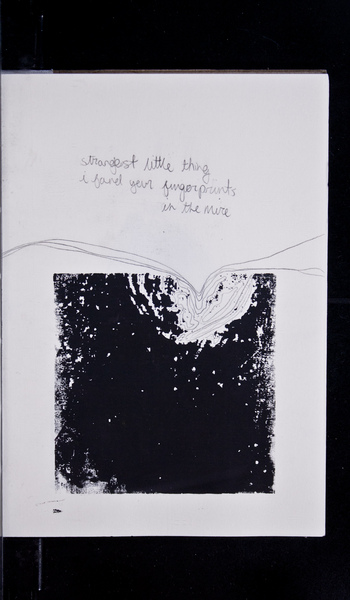 strangest little thing
i found your fingerprints
in the mire